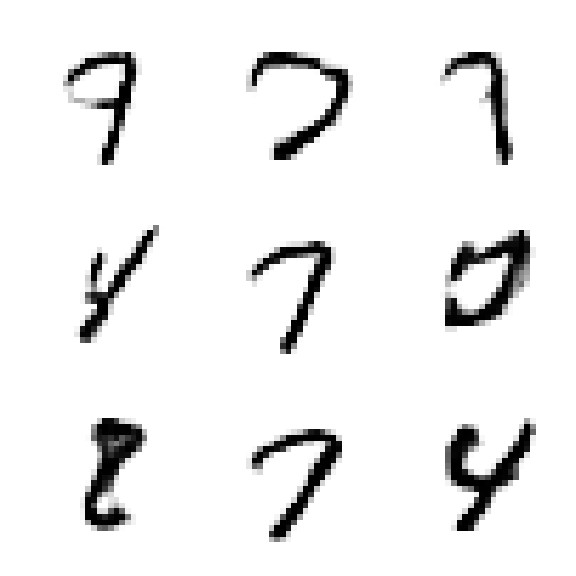 9 7 7
4 7 0
8 7 4